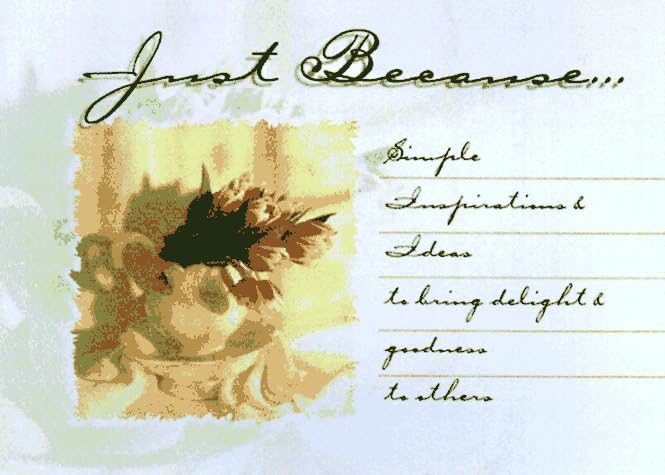 Just Because...
Simple
Inspirations &
Ideas
to bring delight &
goodness
to others